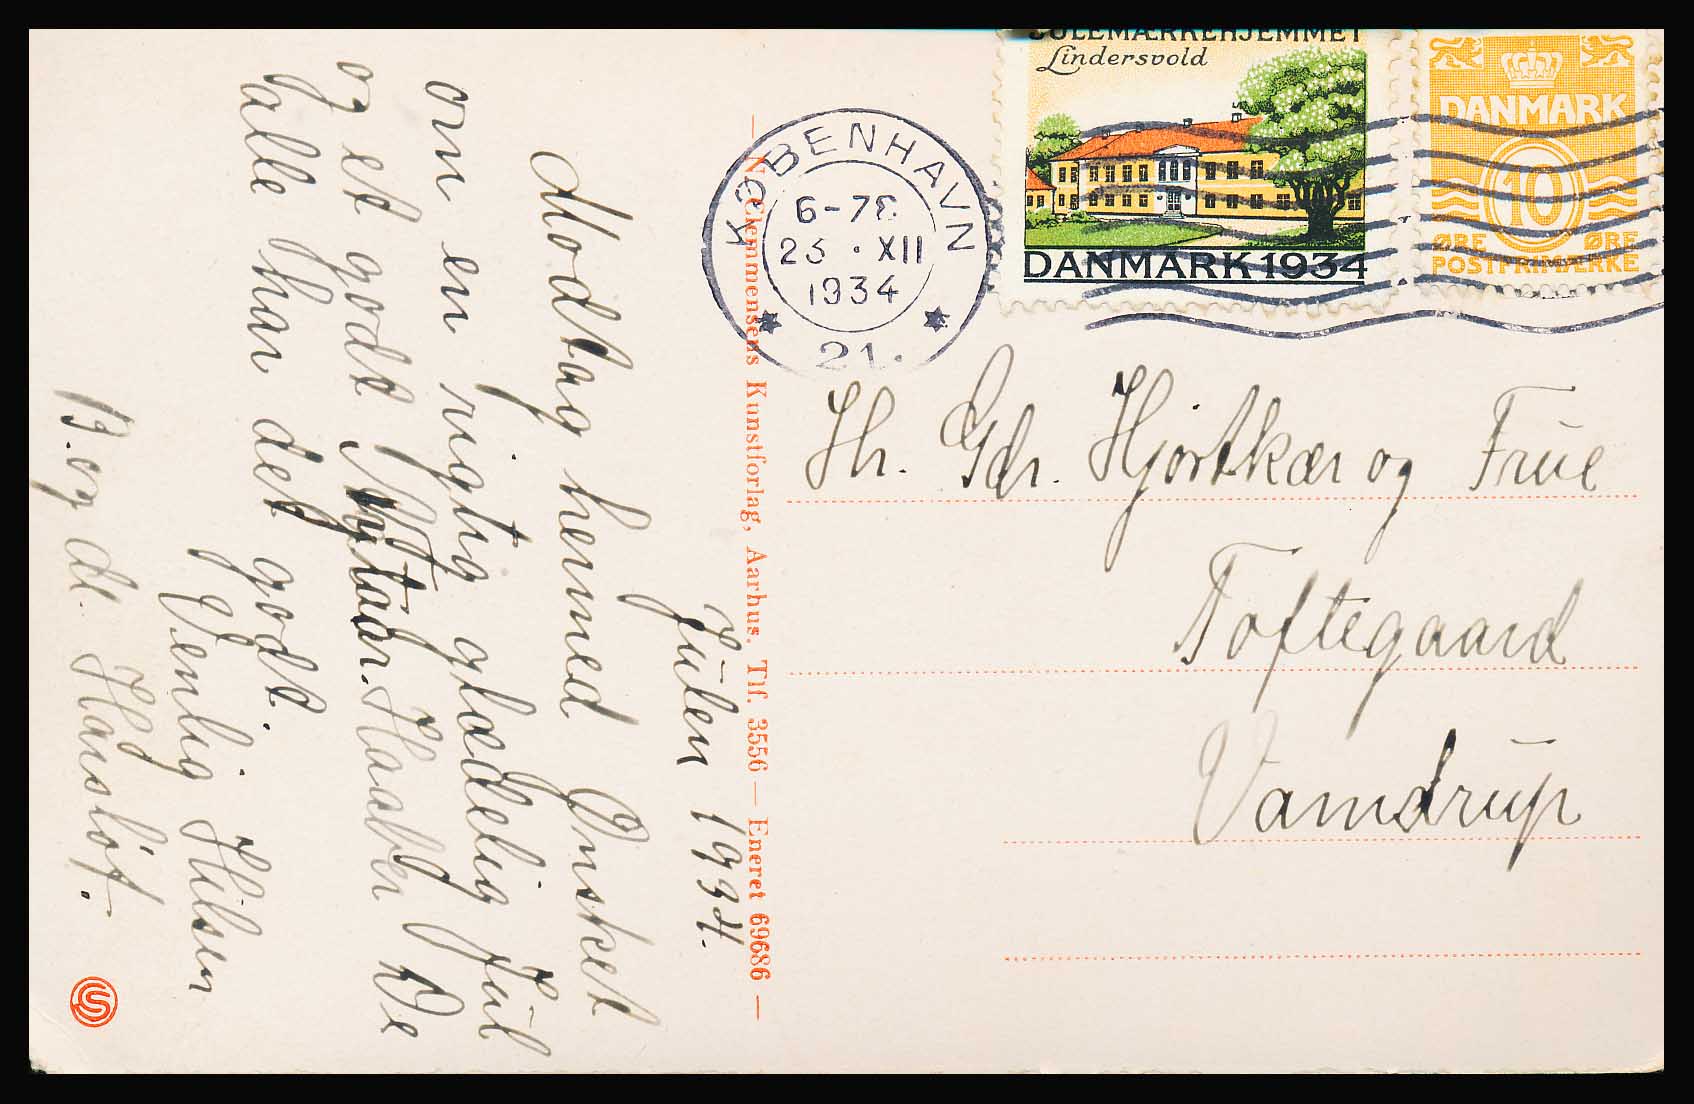 Julen 1934.
Modtag hermed Ønsket
om en rigtig glædelig Jul
og et godt Nytaar. Haaber De
alle har det godt.
Venlig Hilsen
og de Hansløf.
N. Clemmensens Kunstforlag, Aarhus. Tlf. 3556 — Eneret 69686 —
KØBENHAVN
6-7
23 · XII
1934
21.
JULEMÆRKEHJEMMET
Lindersvold
DANMARK 1934
DANMARK
10
ØRE ØRE
POSTFRIMÆRKE
Hr. Gdr. Hjortkær og Frue
Toftegaard
Vamdrup